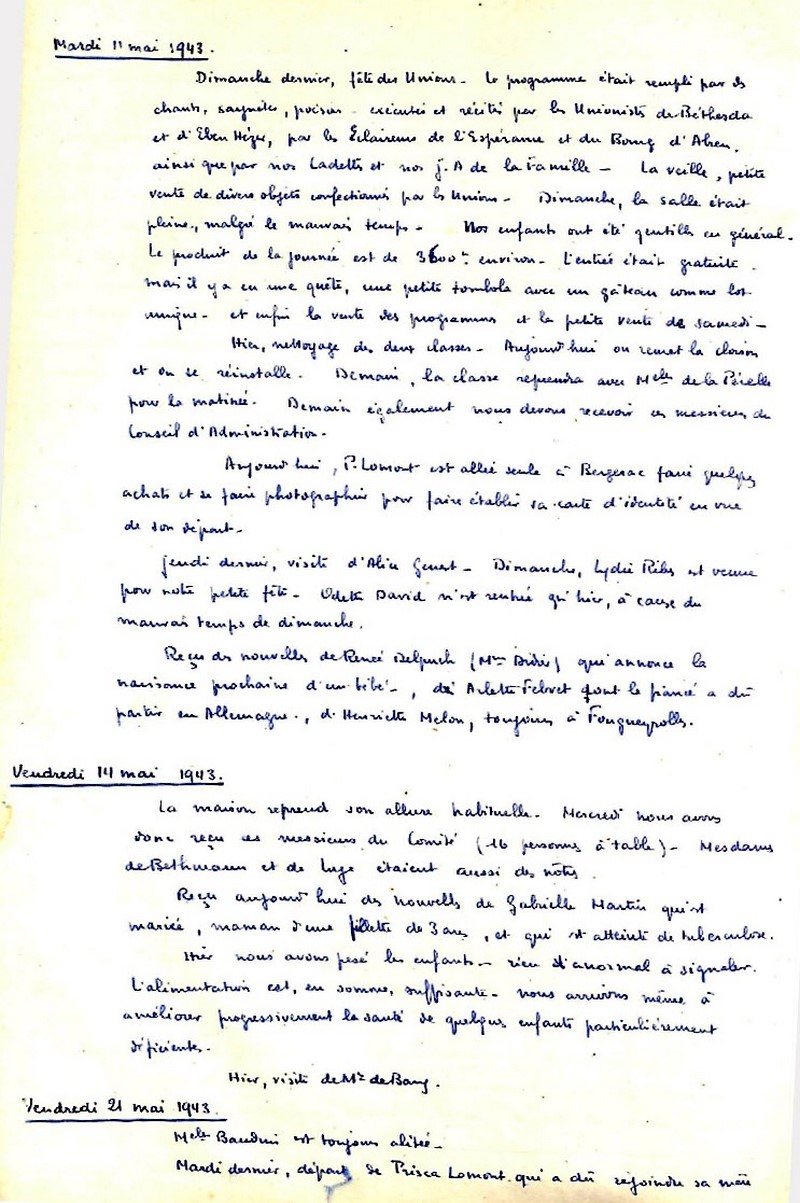 Mardi 11 mai 1943.
Dimanche dernier, fête des Unions - Le programme était rempli par des
chants, saynètes, poésies - exécutés et récités par les Unionistes de Béthesda
et d'Eben Hézer, par les Eclaireurs de l'Espérance et du Bourg d'Abren,
ainsi que par nos Cadettes et nos J.A de la Famille - La veille, petite
vente de divers objets confectionnés par les Unions - Dimanche, la salle était
pleine, malgré le mauvais temps - Nos enfants ont été gentilles en général -
Le produit de la journée est de 3600 environ - L'entrée était gratuite -
mais il y a eu une quête, une petite tombola avec un gâteau comme lot
unique - et enfin la vente des programmes et la petite vente de samedi -
Hier, nettoyage des deux classes - Aujourd'hui on remet la cloison
et on se réinstalle - Demain, la classe reprendra avec Melle de la
pour la matinée - Demain également nous devons recevoir ces messieurs du
Conseil d'Administration -
Aujourd'hui, P. Lomont est allée seule à Bergerac faire quelques
achats et se faire photographier pour faire établir sa carte d'identité en vue
de son départ -
Jeudi dernier, visite d'Alice Genest - Dimanche, Lydie Ribes est venue
pour notre petite fête - Odette David n'est rentrée qu'hier, à cause du
mauvais temps de dimanche.
Reçu des nouvelles de Renée Delpuch (Mme Didier) qui annonce la
naissance prochaine d'un bébé -, de Arlette Febvet dont le fiancé a dû
partir en Allemagne -, d'Henriette Melon, toujours à Fougueyrolles.
Vendredi 14 mai 1943.
La maison reprend son allure habituelle - Mercredi nous avons
donc reçu ces messieurs du Comité (16 personnes à table) - Mesdames
de Bethmann et de Luze étaient aussi des nôtres.
Reçu aujourd'hui des nouvelles de Gabrielle Martin qui est
mariée, maman d'une fillette de 3 ans, et qui est atteinte de tuberculose.
Hier nous avons pesé les enfants - rien d'anormal à signaler.
L'alimentation est, en somme, suffisante - nous arrivons même à
améliorer progressivement la santé de quelques enfants particulièrement
déficientes -
Hier, visite de Mr de Bary.
Vendredi 21 mai 1943.
Melle Baudoin est toujours alitée -
Mardi dernier, départ de Prisca Lomont qui a dû rejoindre sa mère